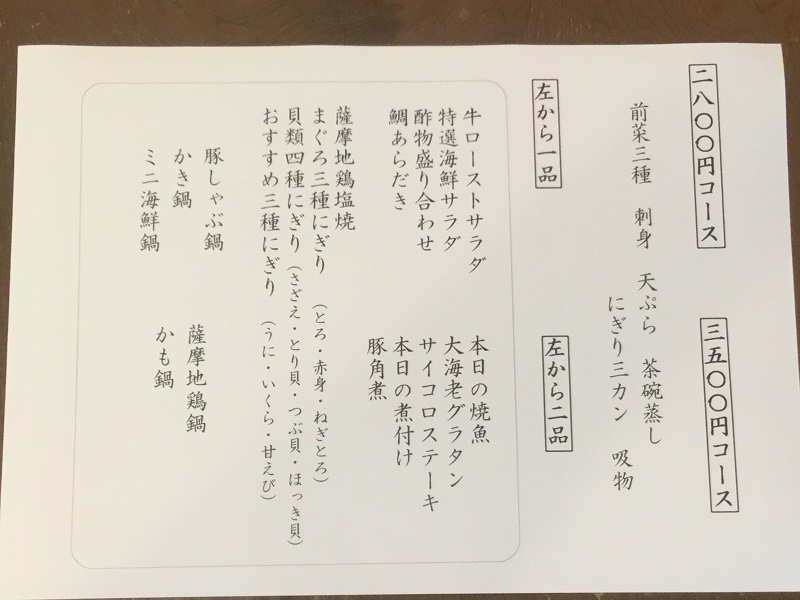 二八〇〇円コース
三五〇〇円コース
前菜三種　刺身　天ぷら　茶碗蒸し
にぎり三カン　吸物
左から一品
左から二品
牛ローストサラダ
本日の焼魚
特選海鮮サラダ
大海老グラタン
酢物盛り合わせ
サイコロステーキ
鯛あらだき
本日の煮付け
豚角煮
薩摩地鶏塩焼
まぐろ三種にぎり（とろ・赤身・ねぎとろ）
貝類四種にぎり（さざえ・とり貝・つぶ貝・ほっき貝）
おすすめ三種にぎり（うに・いくら・甘えび）
豚しゃぶ鍋
薩摩地鶏鍋
かき鍋
かも鍋
ミニ海鮮鍋